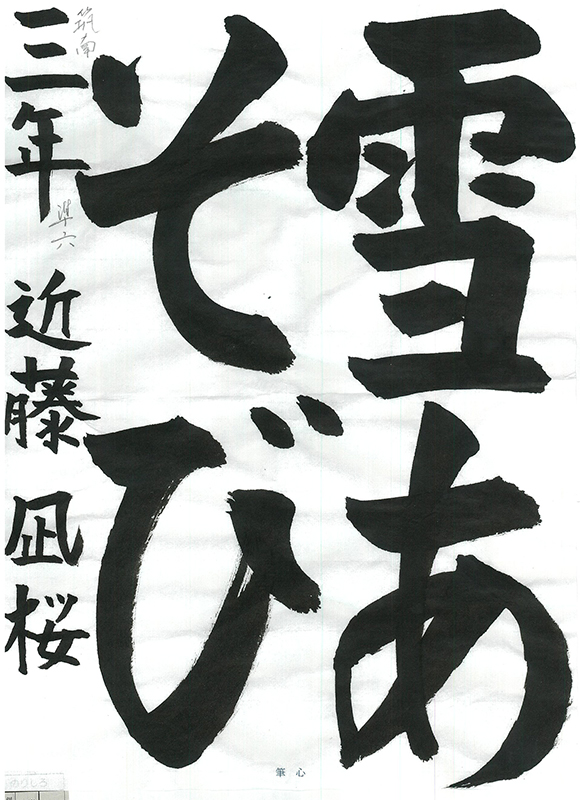 雪あ
そび
三年 近藤凪桜
筑南
準六
筆心